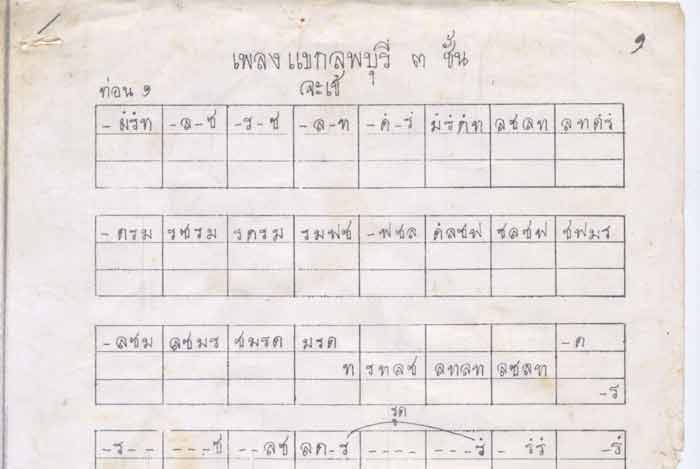 ๑
เพลง แขกลพบุรี ๓ ชั้น
ท่อน ๑ จะเข้
- มํรํท -ล-ช -ร-ช -ล-ท -ดํ-รํ มํรํดํท ลชลท ลทดํรํ
-ดรม รชรม รดรม รมฟช -ฟชล ดํลชฟ ชลชฟ ชฟมร
-ลชม ลชมร ชมรด มรด -ด
ท รทลช ลทลท ลชลท
-ร
รูด
-ร-- ---ช --ลช ลด-ร ---- ---รํ - รํรํ -รํ